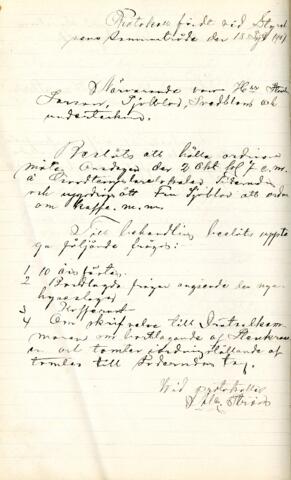 Protokoll fördt vid Styrel
sens sammanträde den 15 Sept
Närvarande voro Hrr
Larsson, Sjöblod, Svedblom och
undertecknad.
Beslöts att hålla ordinarie
möte Onsdagen den 2 Okt kl 7 e.m.
å Goodtemplarelokalen Södernäs
och uppdrogs åt Fru Sjöblod att ordna
om kaffe m.m.
Till behandling beslöts upptа
ga följande frågor:
1 10 öres
2 Bordlagda frågor angående den nya
hyreslagen
3
4 Om skrifvelse till Drätselkam
maren om borttagande af
och tomters iordningställande af
tomter till Södernäs
Vid protokollet